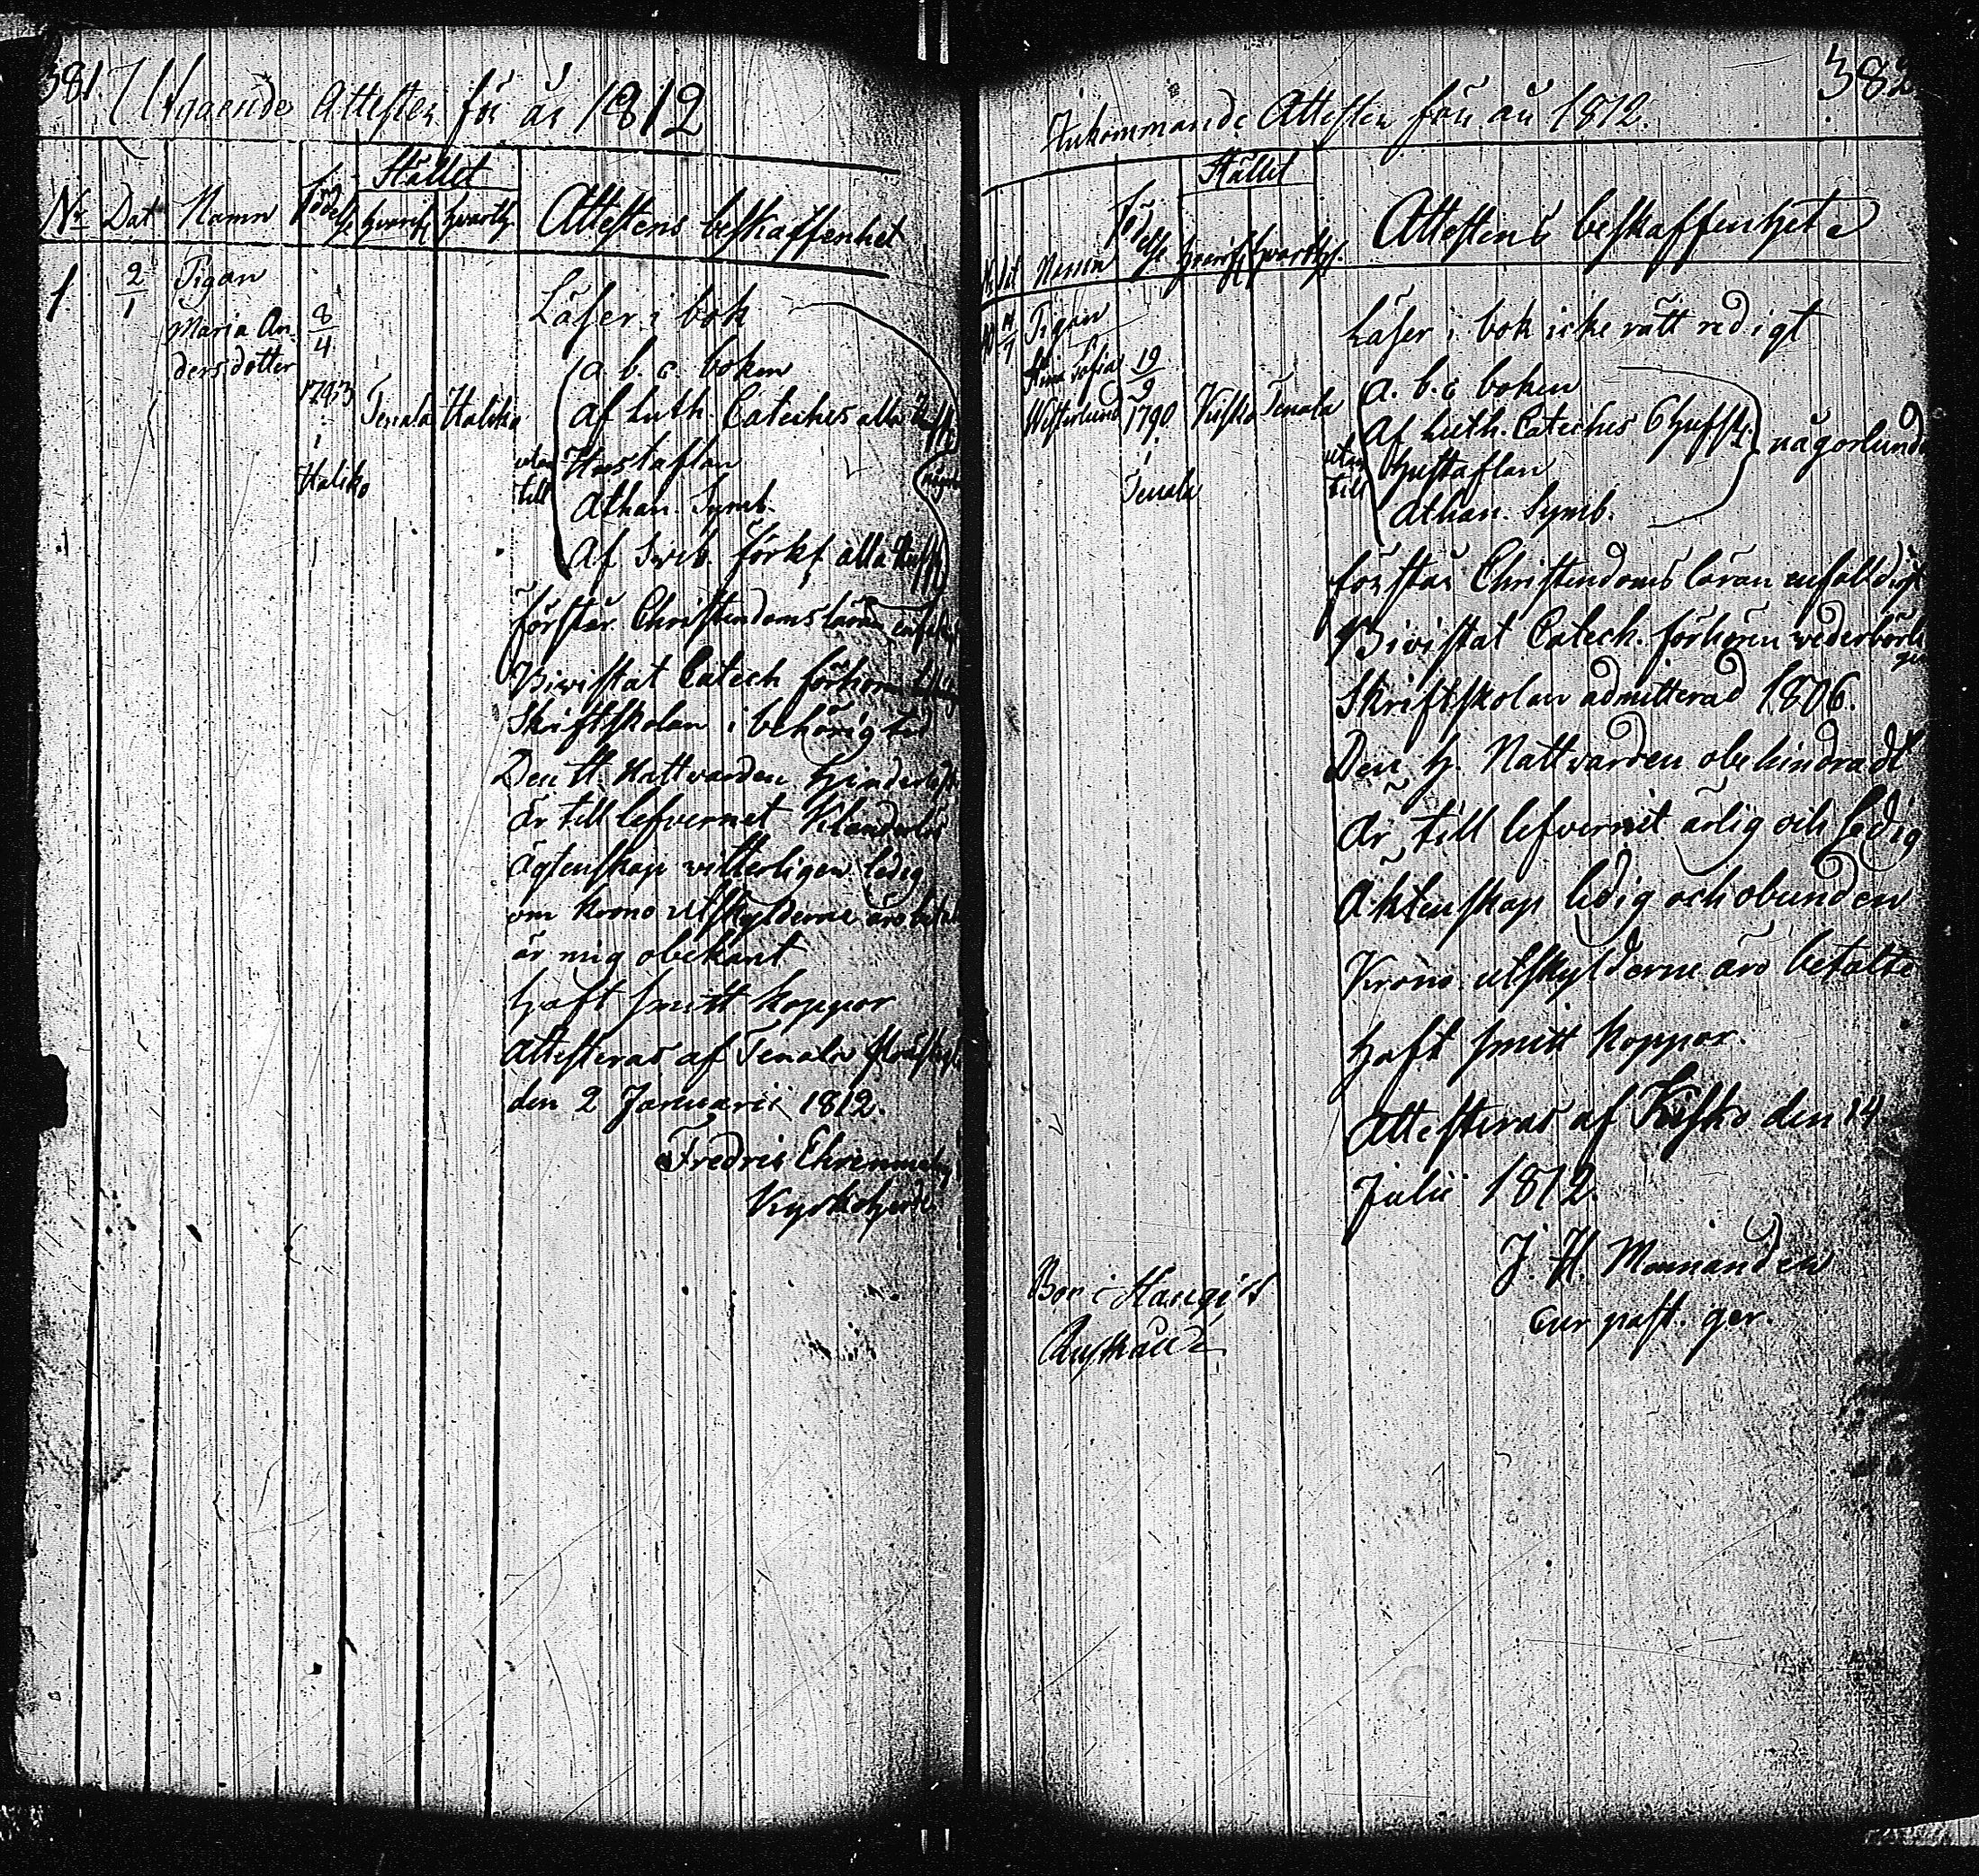 381.
Utgående Attester för år 1812
Stället
No Dat Namn Födelse hvarifr. hvarth. Attestens beskaffenhet
1 2/1 Pigan
Maria An-
dersdotter
8/4
1793
Haliko
Tenala Haliko
Läser i bok
a. b. c. boken
af Luth. Cateches alla
utan
till
Hustaflan
Athan. Symb.
Af Sveb. förkl. alla
förstår Christendomsläran
Bivistat Catech förhören
Skriftskolan i behörig tid
Den H. Nattvarden
är till lefvernet
ägtenskap vitterligen ledig
om Krono utskylderne äro
är mig obekant
haft smitt koppor
Attesteras af Tenala
den 2 Januarii 1812.
Fredric
Kyrkoherde
382
Inkommande Attester för år 1812.
Stället
Namn Födelse hvarifr. hvarth. Attestens beskaffenhet
Pigan
Sofia
Westerlund
19/9
1790
Tenala
Kisko Tenala
Läser i bok icke rätt redigt
a. b. c boken
Af Luth. Cateches 6 hufst.
någorlunda
utan
till
hustaflan
Athan. Symb.
förstår Christendoms läran enfaldigt
Bivistat Catech. förhören vederbörli
gen
Skriftskolan admitterad 1806.
Den H. Nattvarden obehindradt
Är till lefvernet ärlig och sedig
Äktenskap ledig och obunden
Krono utskylderne äro betalte
haft smitt koppor.
Attesteras af Kisko den 14
Julii 1812.
J. H.
cur past. ger.
Bor i